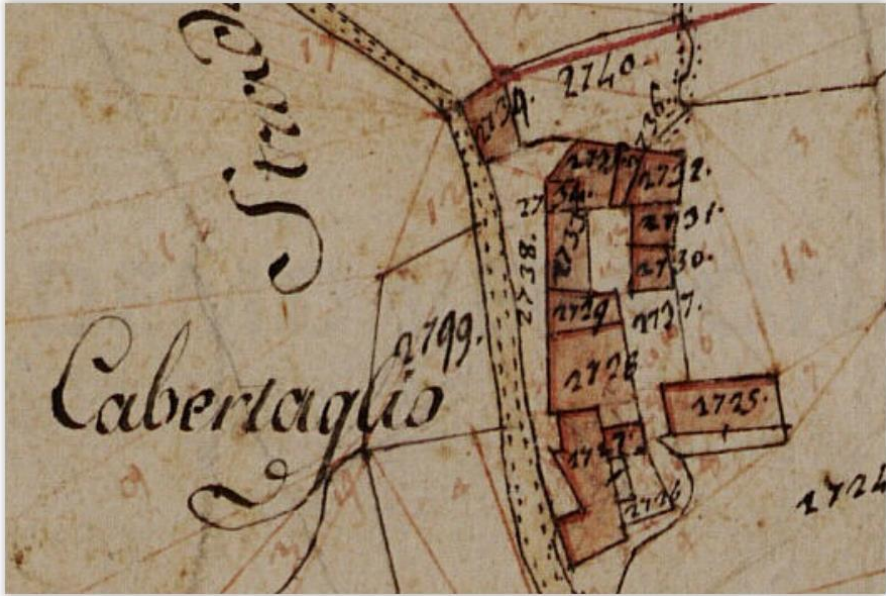 Strad
Cabertaglio
2740.
2739.
2736.
2732.
2734.
2731.
2735
2730.
2738
2729
2737.
2799.
2728
2725.
2727.
2726
2724